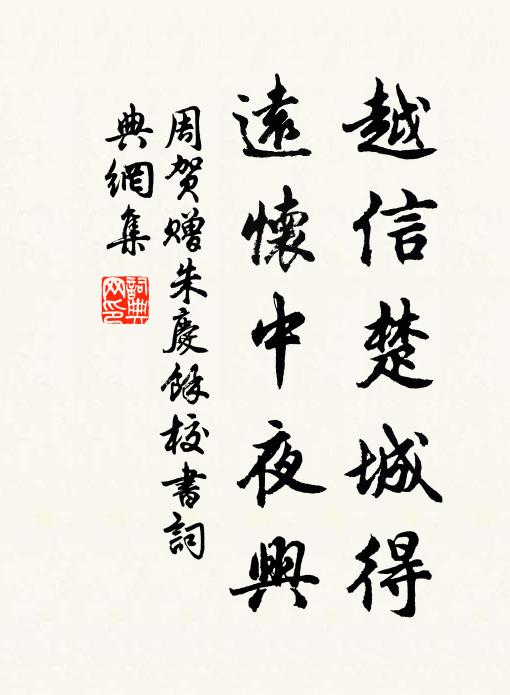 越信楚城得
遠懷中夜興
周贺赠朱慶餘校書詞
典網集
詞典
网印